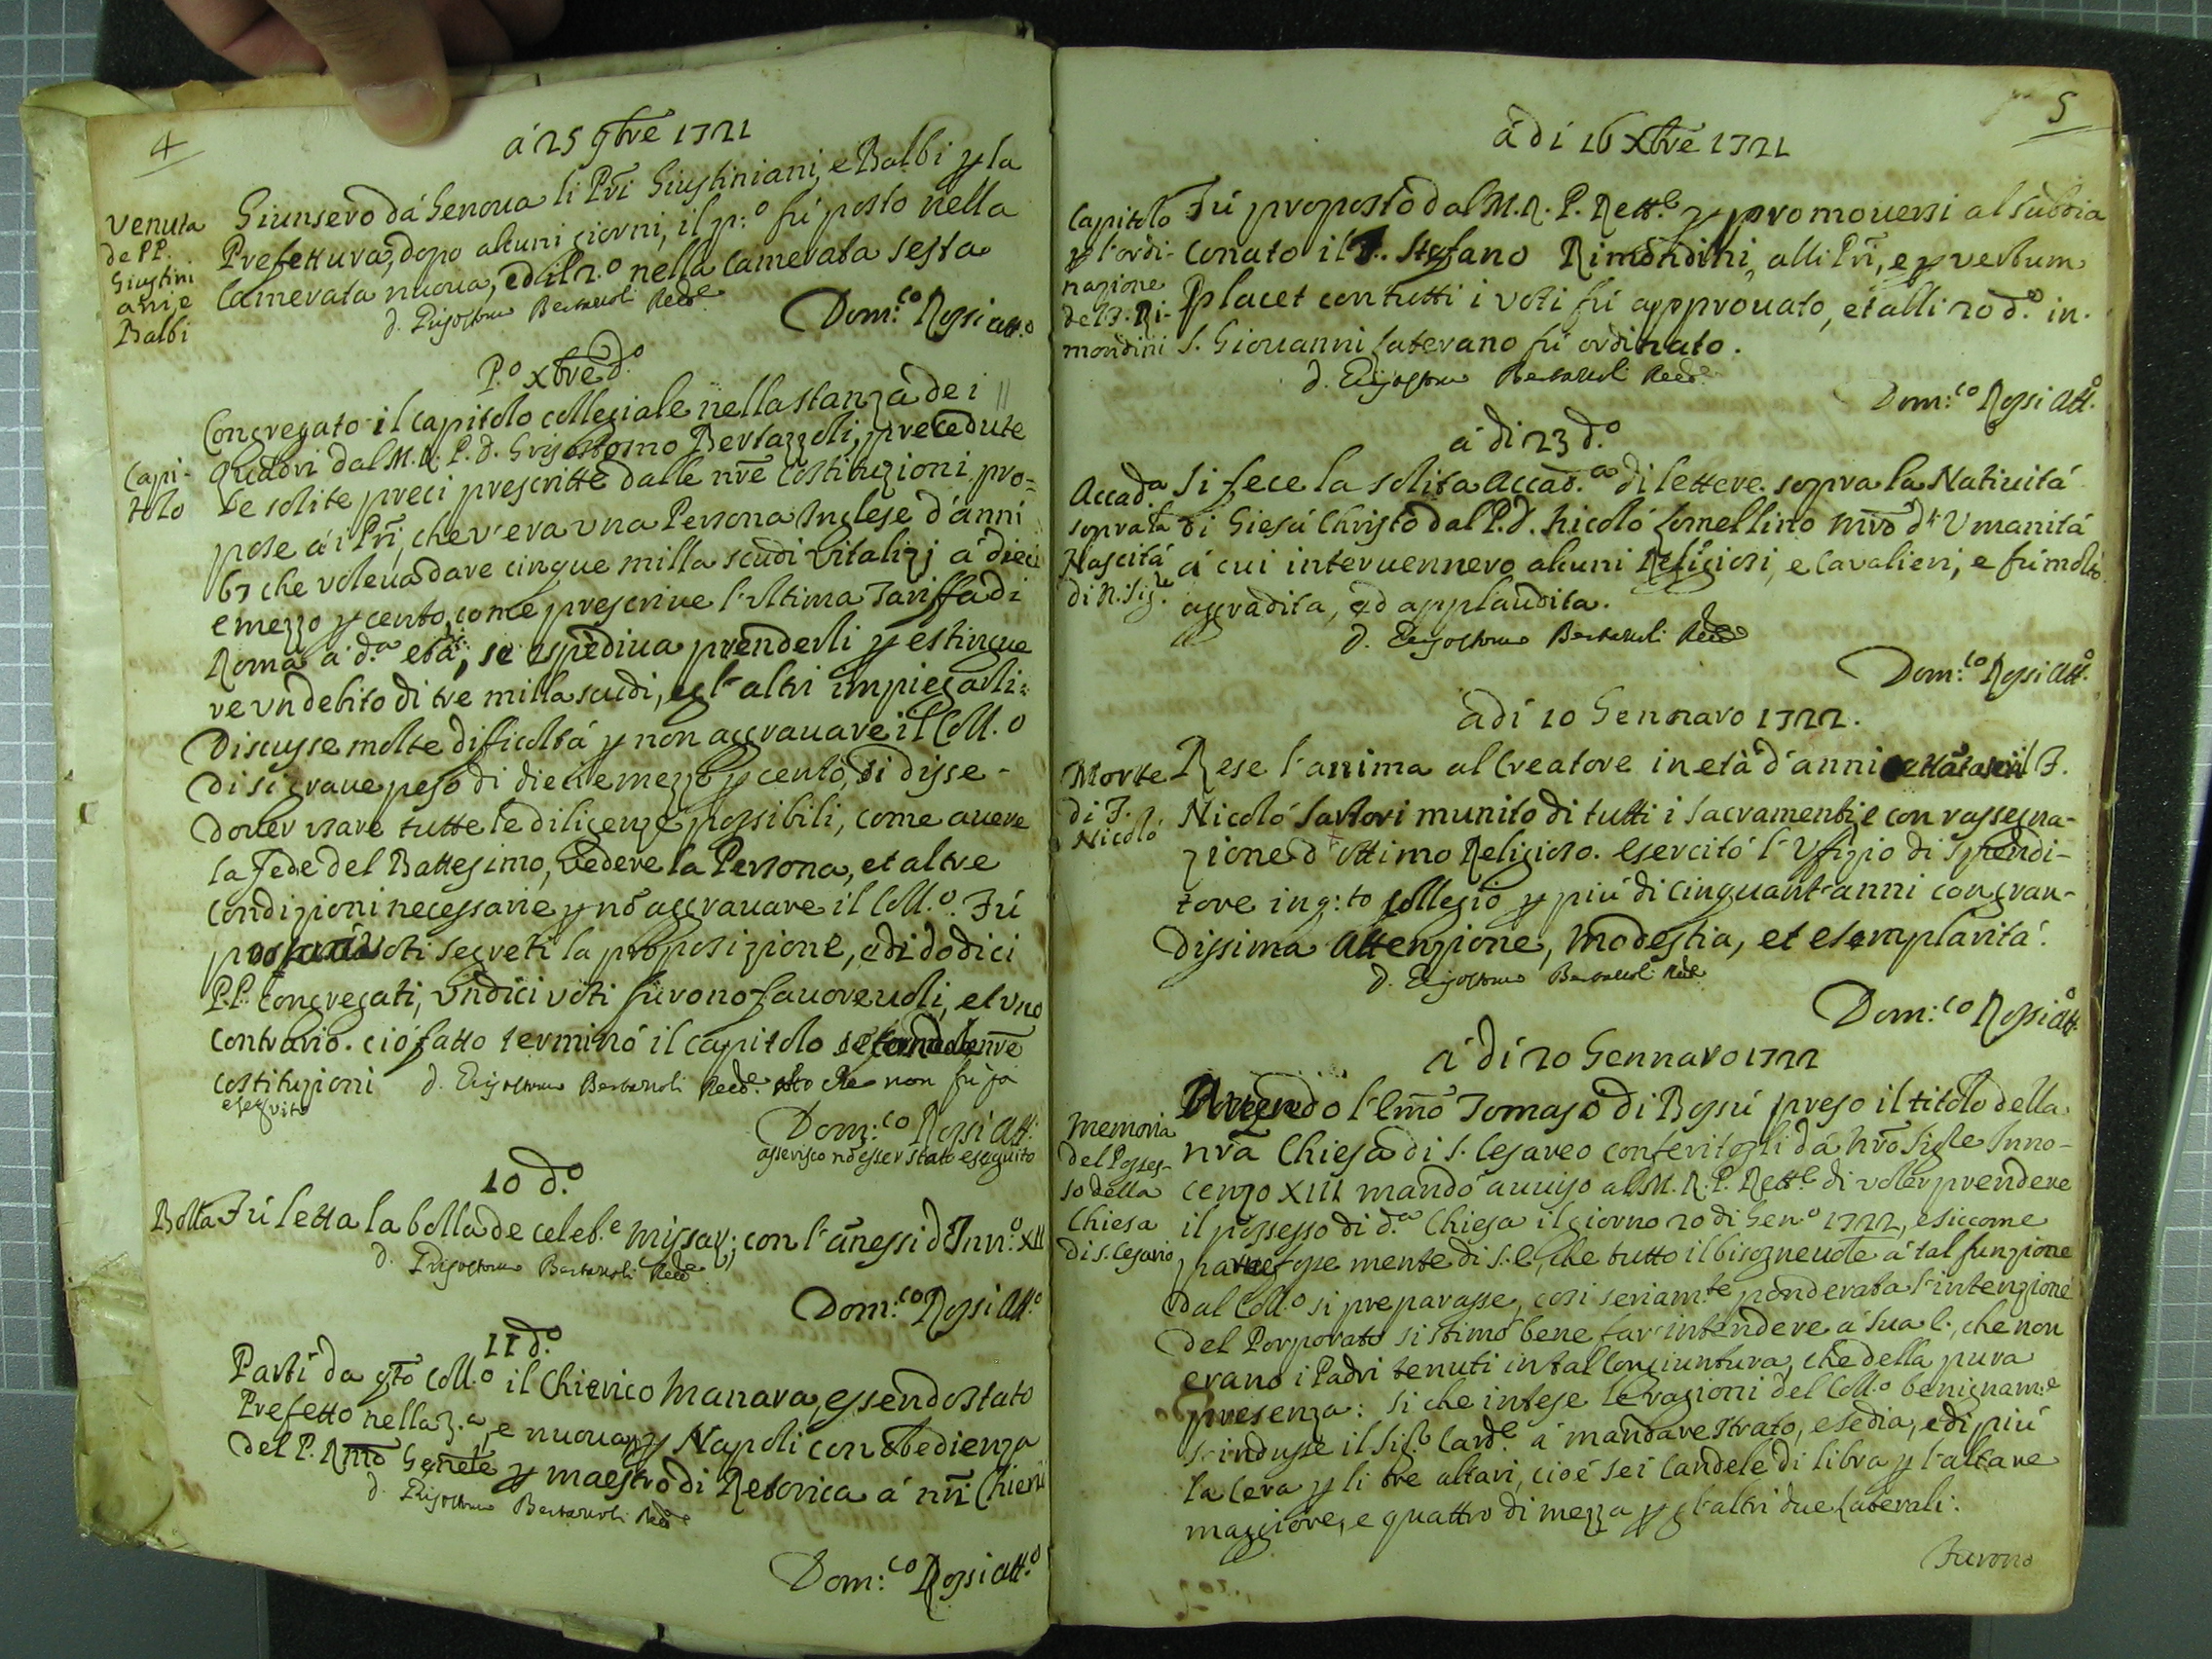 4
á 25 9bre 1721
venuta
de PP.
Giustini
ani, e
Balbi
Giunsero dá Genova li Pri Giustiniani, e Balbi p la
Prefettura, dopo alcuni giorni, il p:o fú posto nella
Camerata nuova, ed il 2.o nella Camerata sesta
d. Grisostomo Bertazzoli Rettre
Dom:co Rossi Att.o
P.o Xbre d.o
Capi-
tolo
Congregato il capitolo collegiale nella stanza de i
Quadri dal M. R. P. D. Grisostomo Bertazzoli, precedute
le solite preci prescritte dalle nre Costituzioni pro-
pose á i Pri, che v'era una Persona Inglese d'anni
67 che voleva dare cinque milla scudi vitalizj á dieci
e mezzo p cento, come prescrive l'ultima Tariffa di
Roma á d.a etá, se espediva prenderli p estingue
re un debito di tre milla scudi, e gl'altri impiegarli:
Discusse molte dificoltá p non aggravare il Coll.o
di sì grave peso di dieci e mezzo p cento, si disse -
dover usare tutte le diligenze possibili, come avere
la Fede del Battesimo, vedere la Persona, et altre
condizioni necessarie p nõ aggravare il Coll.o. Fú
voti segreti la proposizione, e di dodici
P.P. congregati, undici voti furono favorevoli, et uno
contrario. ció fatto terminó il capitolo secondo le nre
costituzioni d. Grisostomo Bertazzoli Rettre il che non fú
eseguito
Dom:co Rossi Att.
asserisco nõ esser stato eseguito
10 d.o
Bolla
Fú letta la bolla de celeb.e missar; con l'anessi d'Inn.o XII
d. Grisostomo Bertazzoli Rettre
Dom:co Rossi Att.o
11 d.o
Partí da qto Coll.o il Chierico Manara, essendo stato
Prefetto nella 3.a, e nuova p Napoli con obedienza
del P. Rmo Genele p maestro di Retorica á nri Chieri
d. Grisostomo Bertazzoli Rettre
Dom:co Rossi Att.o
5
á di 16 Xbre 1721
Capitolo
p l'ordi-
nazione
del F. Ri-
mondini
Fú proposto dal M. R. P. Rett.e p promoversi al subdia
conato il F. Stefano Rimondini, alli Pri, e p verbum
Placet con tutti i voti fú approvato, et alli 20 d.o in
S. Giovanni Laterano fú ordinato.
d. Grisostomo Bertazzoli Rettre
Dom:co Rossi Att.o
á di 23 d.o
Accad.a
sopra la
Nascitá
di N. Sigre
Si fece la solita Accad.a di lettere sopra la Nativitá
di Giesú Christo dal P. D. Nicoló Lomellino mro d'Umanitá
á cui intervennero alcuni Religiosi, e Cavalieri, e fú molto
aggradita, ed applaudita.
d. Grisostomo Bertazzoli Rettre
Dom:co Rossi Att.o
adi 10 Gennaro 1722.
Morte
di F.
Nicoló
Rese l'anima al Creatore in etá d'anni il F.
Nicoló Sartori munito di tutti i sacramenti, e con rassegna-
zione d'ottimo Religioso. esercitó l'Uffizio di Spendi-
tore in q:to collegio p piú di cinquant'anni con gran-
dissima attenzione, modestia, et esemplaritá.
d. Grisostomo Bertazzoli Rettre
Dom:co Rossi Att.o
á di 20 Gennaro 1722
Memoria
del Posses-
so della
Chiesa
di S. Cesario
Avendo l'Emo Tomaso di Bossú preso il titolo della
nra Chiesa di S. Cesareo conferitogli dá Nro Sigre Inno-
cenzo XIII mandó avviso al M. R. P. Rett.e di voler prendere
il possesso di d.a Chiesa il giorno 20 di Gen.o 1722, e siccome
fosse mente di S. E., che tutto il bisognevole á tal funzione
dal Coll.o si preparasse, cosi seriam.te ponderata l'intenzione
del Porporato si stimó bene far intendere á Sua E., che non
erano i Padri tenuti in tal congiuntura, che della pura
presenza: si che intese le ragioni del Coll.o benignam.e
s'indusse il Sig.e Card.e á mandare strato, e sedia, e di piú
la cera p li tre altari, cioé sei candele di libra p l'altare
maggiore, e quattro di mezza p gl'altri due laterali.
Furono